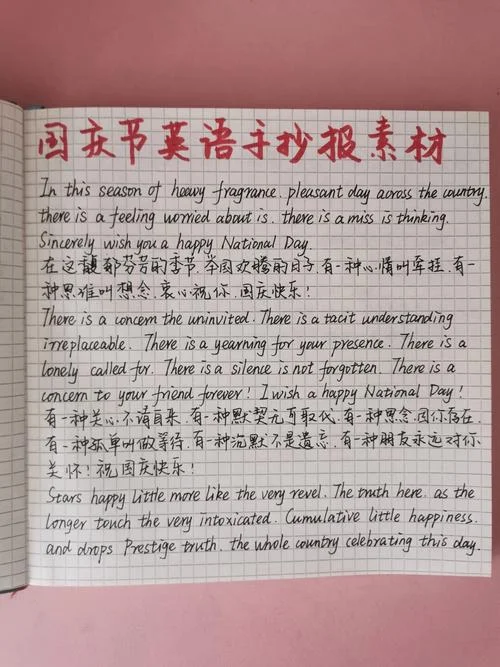 国庆节英语手抄报素材
In this season of heavy fragrance. pleasant day across the country.
there is a feeling worried about is. there is a miss is thinking.
Sincerely wish you a happy National Day.
在这馥郁芬芳的季节.举国欢腾的日子.有一种心情叫牵挂.有一
种思维叫想念.衷心祝你.国庆快乐!
There is a concern the uninvited. There is a tacit understanding
irreplaceable. There is a yearning for your presence. There is a
lonely called for. There is a silence is not forgotten. There is a
concern to your friend forever! I wish a happy National Day!
有一种关心.不请自来.有一种默契无可取代.有一种思念.因你存在.
有一种孤单叫做等待.有一种沉默不是遗忘.有一种朋友永远对你
关怀!祝国庆快乐!
Stars happy Little more like the very revel. The truth here. as the
longer touch the very intoxicated. Cumulative little happiness.
and drops Prestige truth. the whole country celebrating this day.